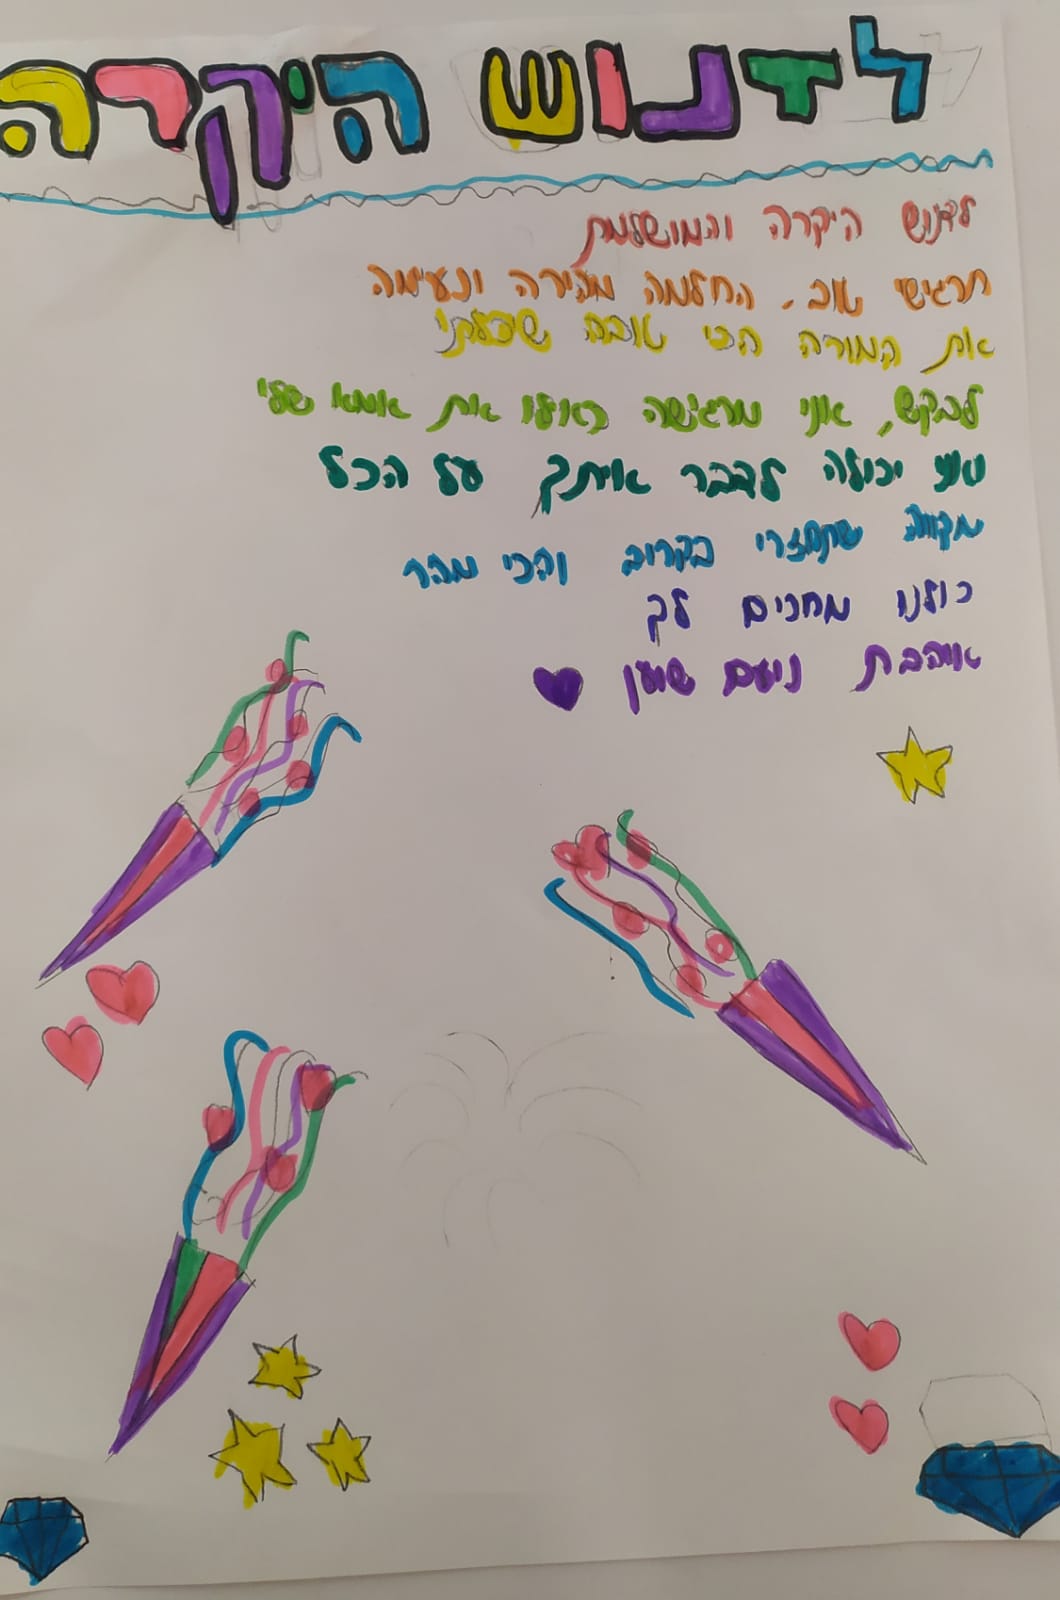 לדנוש היקרה
לדנוש היקרה והמושלמת
תרגישי טוב. החלמה מהירה ונעימה
את המורה הכי טובה שיכלתי
לבקש, אני מרגישה כאילו את אמא שלי
ואני יכולה לדבר איתך על הכל
מקווה שתחזרי בקרוב והכי מהר
כולנו מחכים לך
אוהבת נועם